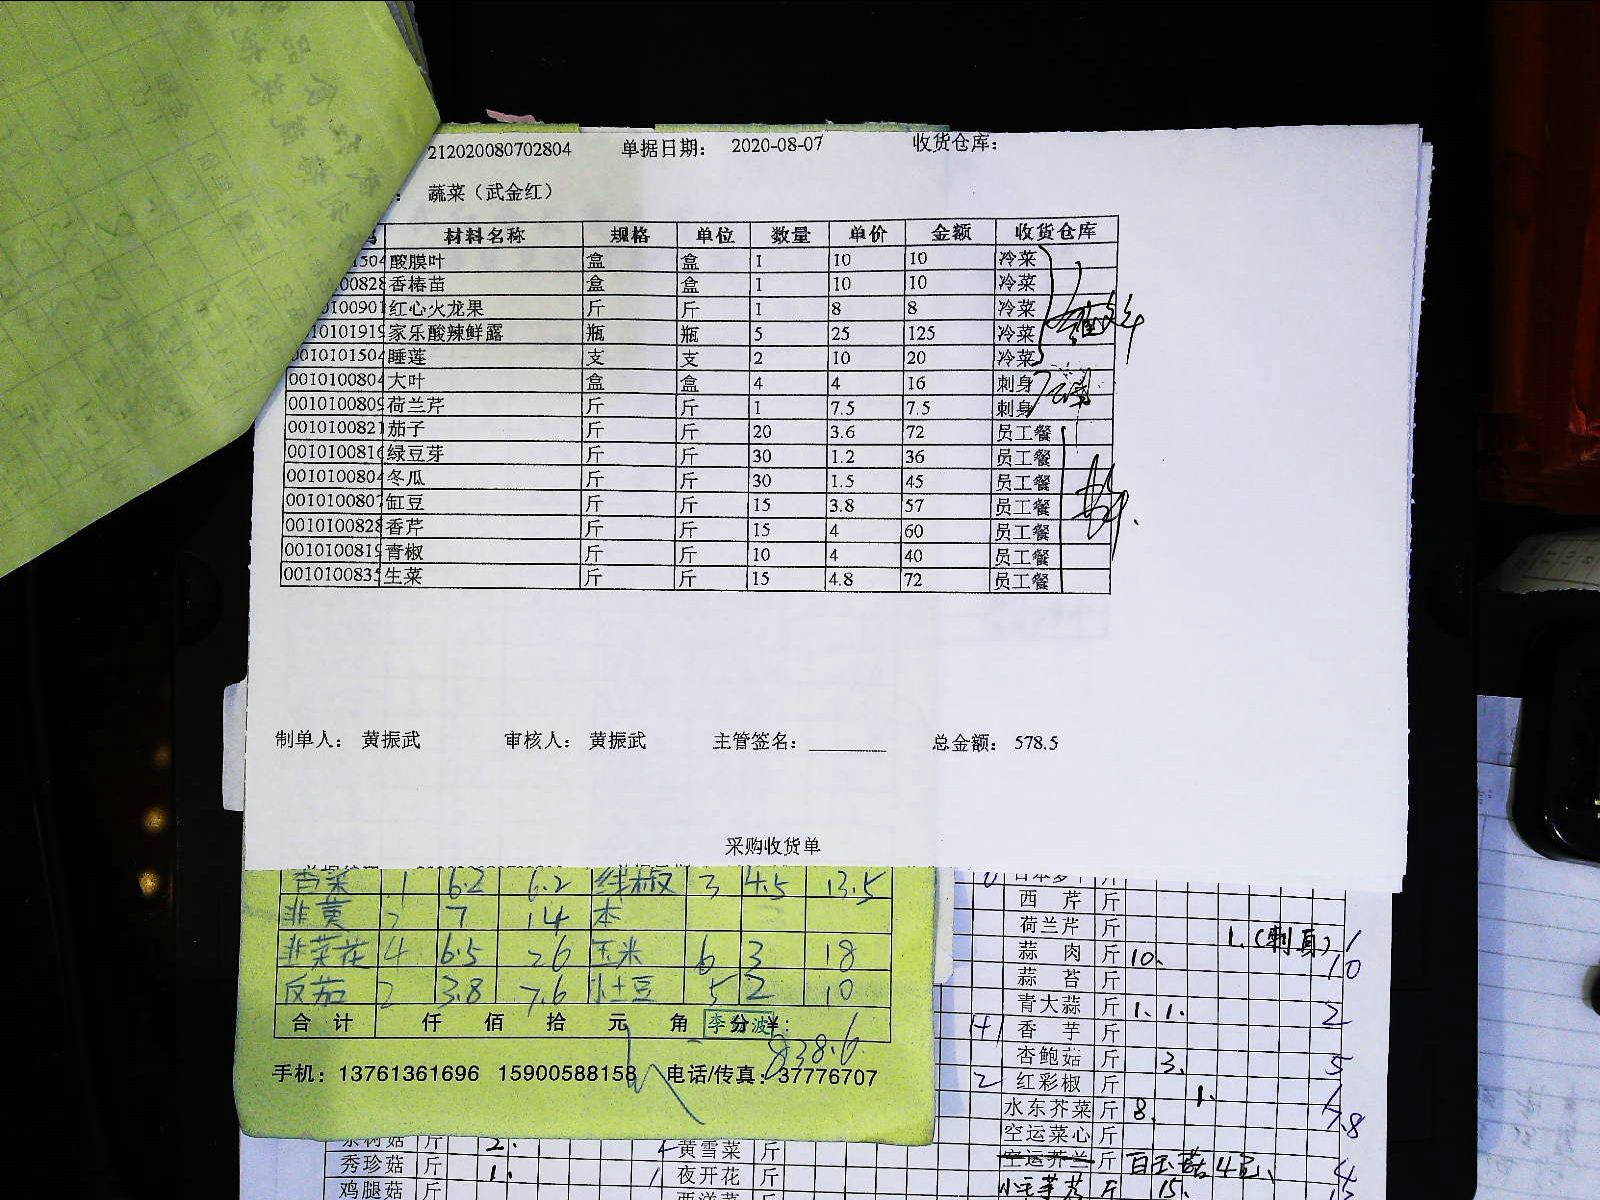 212020080702804 单据日期： 2020-08-07 收货仓库：
： 蔬菜（武金红）
材料名称 规格 单位 数量 单价 金额 收货仓库
1504 酸膜叶 盒 盒 1 10 10 冷菜
100828 香椿苗 盒 盒 1 10 10 冷菜
0100901 红心火龙果 斤 斤 1 8 8 冷菜
10101919 家乐酸辣鲜露 瓶 瓶 5 25 125 冷菜
0010101504 睡莲 支 支 2 10 20 冷菜
0010100804 大叶 盒 盒 4 4 16 刺身
0010100809 荷兰芹 斤 斤 1 7.5 7.5 刺身
0010100821 茄子 斤 斤 20 3.6 72 员工餐
0010100816 绿豆芽 斤 斤 30 1.2 36 员工餐
0010100804 冬瓜 斤 斤 30 1.5 45 员工餐
0010100807 缸豆 斤 斤 15 3.8 57 员工餐
0010100828 香芹 斤 斤 15 4 60 员工餐
0010100819 青椒 斤 斤 10 4 40 员工餐
0010100835 生菜 斤 斤 15 4.8 72 员工餐
制单人： 黄振武 审核人： 黄振武 主管签名： 总金额： 578.5
采购收货单
香菜 1 6.2 6.2 线椒 3 4.5 13.5
韭黄 2 7 14 本
韭菜花 4 6.5 26 玉米 6 3 18
反茄 2 3.8 7.6 小土豆 5 2 10
合计 仟 佰 拾 元 角 分 李 波 838.6
手机：13761361696 15900588158 电话/传真：37776707
西芹 斤
荷兰芹 斤 1.（刺身） 1
蒜肉 斤 10. 10
蒜苔 斤
青大蒜 斤 1. 1. 2
香芋 斤
杏鲍菇 斤 3. 5
2 红彩椒 斤 1. 1
水东芥菜 斤 8. 7.8
空运菜心 斤
空运芥兰 斤 白玉菇4盒 4
小毛芋艿 斤 15.
茶树菇 斤 2. 黄雪菜 斤
秀珍菇 斤 1. 1 夜开花 斤
鸡腿菇 斤 西洋菜